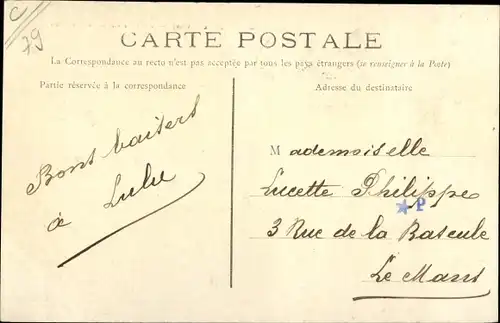 C
79
CARTE POSTALE
La Correspondance au recto n'est pas acceptée par tous les pays étrangers (se renseigner à la Poste)
Partie réservée à la correspondance
Adresse du destinataire
Bons baisers
à Lulu
Mademoiselle
Lucette Philippe
P
3 Rue de la Bascule
Le Mans